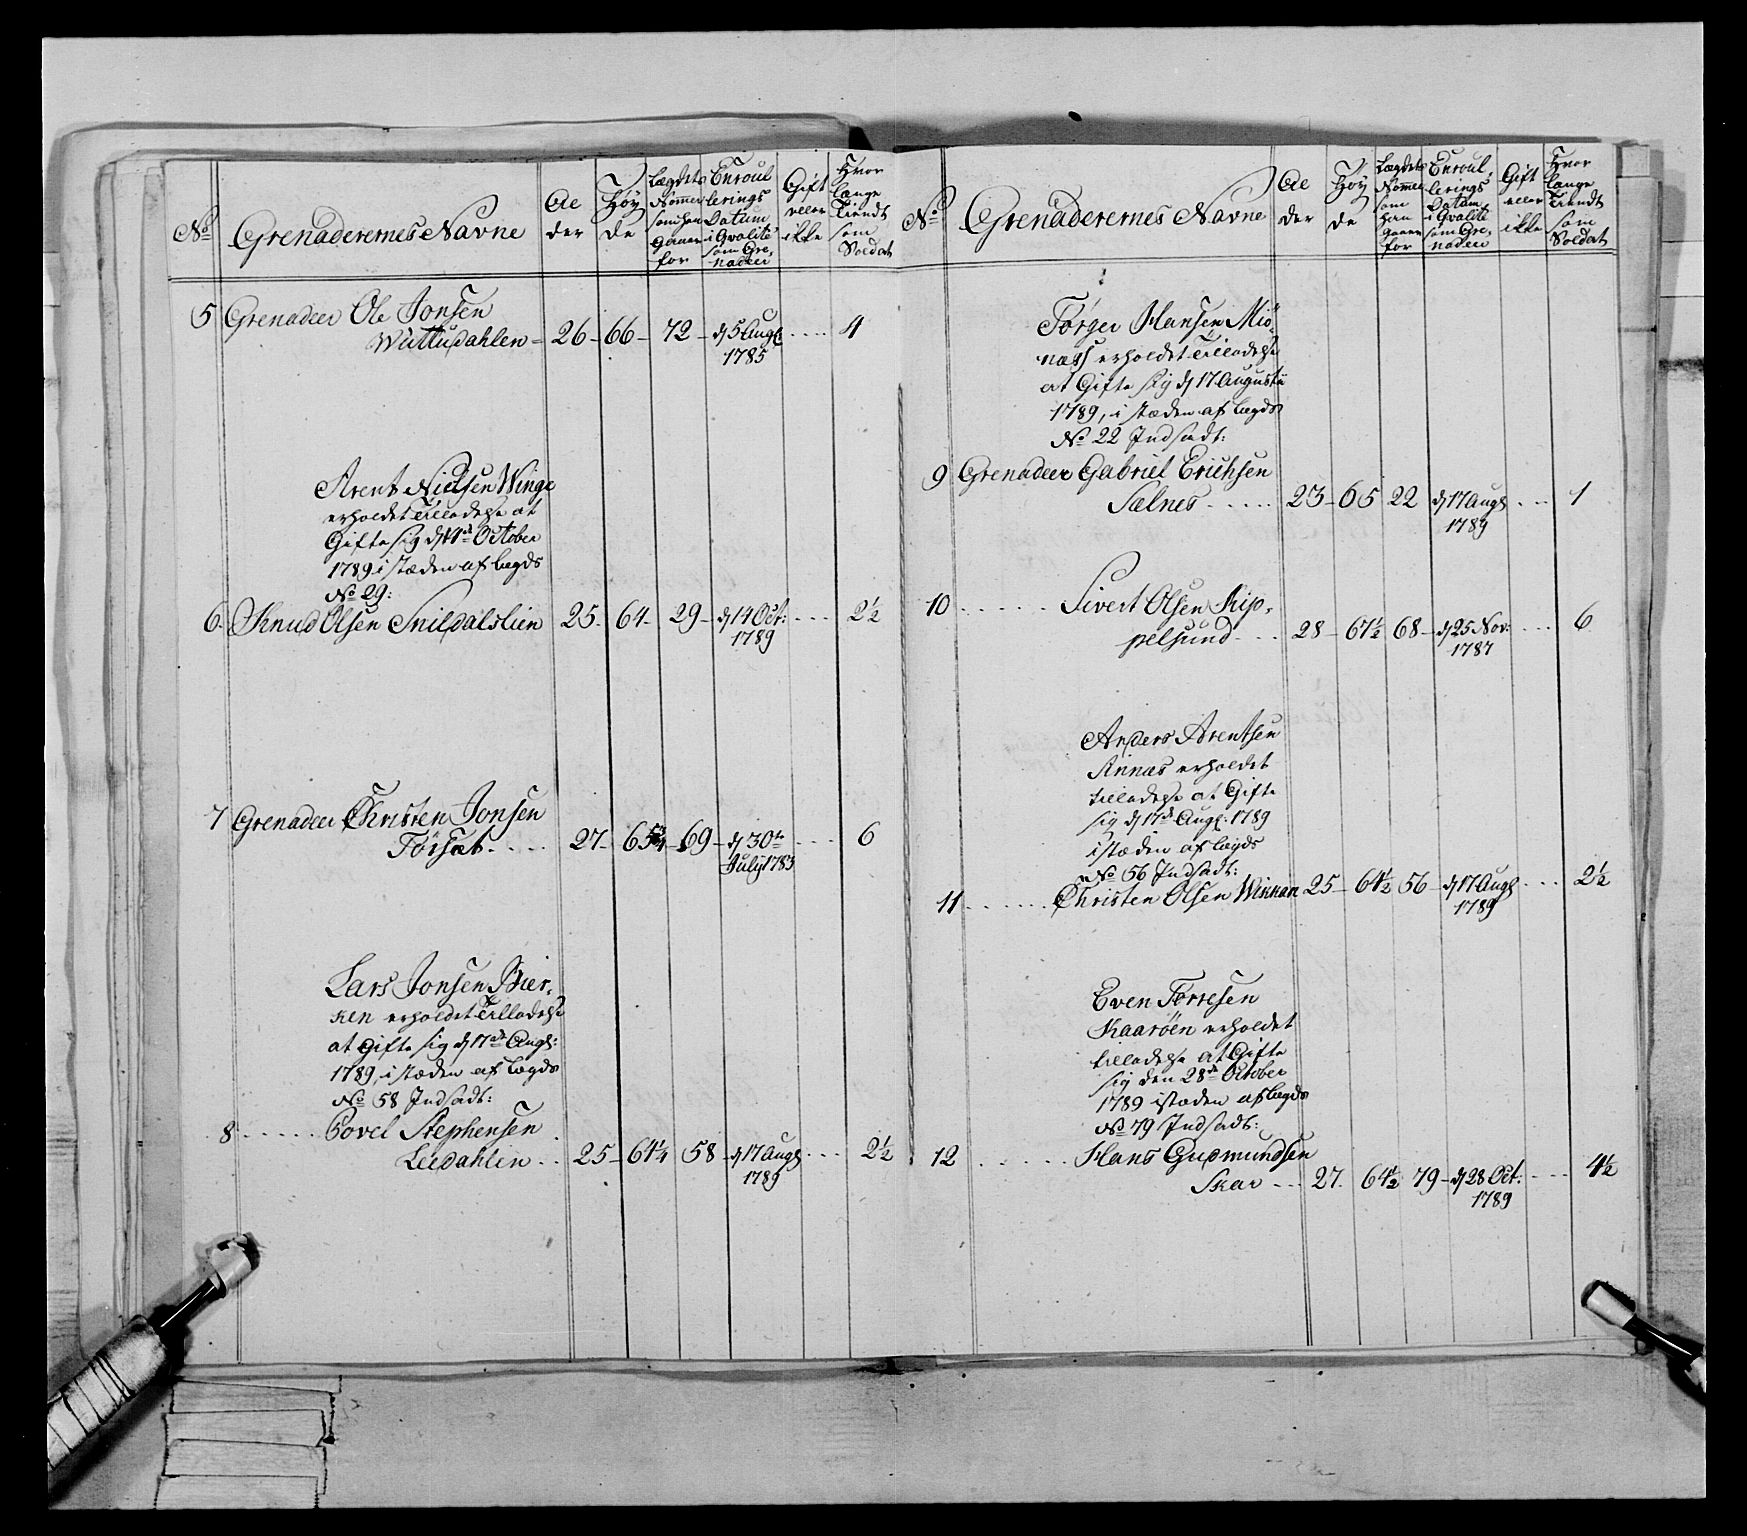 No
Grenaderernes Navne
Ael
der
Høy
de
Lægdets
Nommer
som han
gaaer
for
Enroul
lerings
Datum
i Qvalité
som Gre,
nadeer
Gift
eller
ikke
Hvor
længe
tiendt
som
Soldat
5 Grenadeer Ole Jonsen
Wuttudahlen - 26 - 66 - 72 - d 5 Augl .... 4
1785
Arent Nielsen Winge
erholdet Tilladelse at
Gifte sig d 14de October
1789 i stæden af Lægds
No 29:
6. Knud Olsen Snildalslien 25- 64- 29- d 14 Oct: ... 2½
1789
7 Grenadeer Christen Jonsen
Torsæt ..... 27- 65¾ - 69 - d 30te .... 6
July 1783
Lars Jonsen Bier,
ken erholdet Tilladelse
at Gifte sig d 17de Augl:
1789, i stæden af Lægds
No 58 Indsadt:
8 ..... Povel Stephensen
Leedahlen .. 25- 64¼ 58 - d 17 Augl .... 2½
1789
No
Grenaderernes Navne
Ael
der
Høy
de
Lægdets
Nomer
som
han
gaaer
for
Enroul,
lerings
Datum
i Qvalité
som Gre,
nadeer
Gift
eller
ikke
Hvor
længe
tiendt
som
Soldat
Torger Hansen Miö,
næss erholdet Tilladelse
at Gifte sig d 17 Augusti
1789, i stæden af Lægds
No 22 Indsadt:
9 Grenadeer Gabriel Erichsen
Sælnes ..... 23- 65 22 d 17 Augl .... 1
1789
10 ...... Sivert Olsen Kip,
pelsund ... 28 - 67½ 68 - d 25 Nov: .... 6
1787
Anders Arentsen
Rinnæs erholdet
tilladelse at Gifte
sig d 17de Augl: 1789
i stæden af Lægds
No 56 Indsadt:
11 ...... Christen Olsen Winnan 25- 64½ 56 - d 17 Augl .... 2½
1789
Even Torresen
Kaaröen erholdet
tilladelse at Gifte
sig den 28de October
1789 i stæden af Lægds
No 79 Indsadt:
12 ...... Hans Gudmundsen
Skar ... 27. 64½ 79 - d 28 Oct: .... 4½
1789